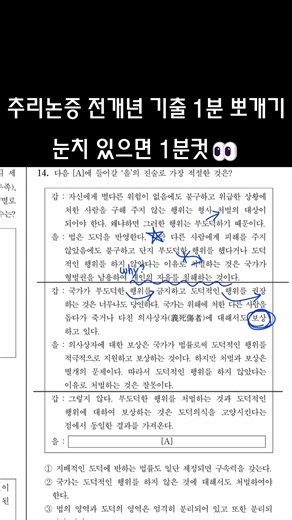 추리논증 전개년 기출 1분 뽀개기
눈치 있으면 1분컷👀
14. 다음 [A]에 들어갈 '을'의 진술로 가장 적절한 것은?
갑 : 자신에게 별다른 위험이 없음에도 불구하고 위급한 상황에
처한 사람을 구해 주지 않는 행위는 형사처벌의 대상이
되어야 한다. 왜냐하면 그러한 행위는 부도덕하기 때문이다.
을 : 법은 도덕을 반영한다. 다른 사람에게 피해를 주지
않았음에도 불구하고 단지 부도덕한 행위를 했다거나 도덕
적인 행위를 하지 않았다는 이유로 처벌하는 것은 국가가
why?
형벌권을 남용하여 개인의 자유를 침해하는 것이다.
갑 : 국가가 부도덕한 행위를 금지하고 도덕적인 행위를 권장
하는 것은 너무나도 당연하다. 국가는 위해에 처한 다른 사람을
돕다가 죽거나 다친 의사상자(義死傷者)에 대해서도 보상
하고 있다.
을 : 의사상자에 대한 보상은 국가가 법률로써 도덕적인 행위를
적극적으로 지원하고 보상하는 것이다. 하지만 처벌과 보상은
별개의 문제이다. 따라서 도덕적인 행위를 하지 않았다는
이유로 처벌하는 것은 잘못이다.
갑 : 그렇지 않다. 부도덕한 행위를 처벌하는 것과 도덕적인
행위에 대하여 보상하는 것은 도덕의식을 고양시킨다는
점에서 동일한 결과를 가져온다.
을 : [A]
① 지배적인 도덕에 반하는 법률도 일단 제정되면 구속력을 갖는다.
② 국가는 도덕적인 행위를 하지 않은 것에 대해서도 처벌하여야
한다.
③ 법의 영역과 도덕의 영역은 엄격히 분리되어 있고 또한 분리되